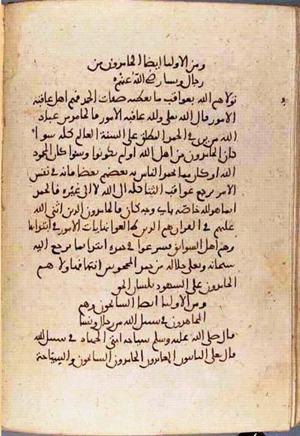 ومن الأولياء ايضا الحامدون من
رجال ونساء رضي الله عنهم
تولاهم الله بعواقب ما تعطيه صفات الحمد فهم اهل عاقبة
الامور قال الله تعالى ولله عاقبة الامور فالحامد من عباد
الله من يرى في الحمد المطلق على السنة العالم كله سواء
كان الحامدون من اهل الله او لم يكونوا وسواء كان المحمود
الله او كان مما يحمد الناس به بعضهم بعضا فانه في نفس
الامر يرجع عواقب الثنا كله الى الله لا الى غيره فالحمد
انما هو لله خاصة باي وجه كان فالحامدون الذين اثنى الله
عليهم في القرآن هم الذين طالعوا نهايات الامور في ابتدائها
وهم اهل السوابق فشرعوا في حمده ابتدا بما يرجع اليه
سبحانه وتعالى جلاله من حمد المحجوبين انتها فهاولا هم
الحامدون على الشهود بلسان الحق
ومن الاولياء ايضا السائحون وهم
المجاهدون في سبيل الله من رجال ونسا
قال صلى الله عليه وسلم سياحة امتي الجهاد في سبيل الله
قال تعالى التائبون العابدون الحامدون السائحون والسياحة